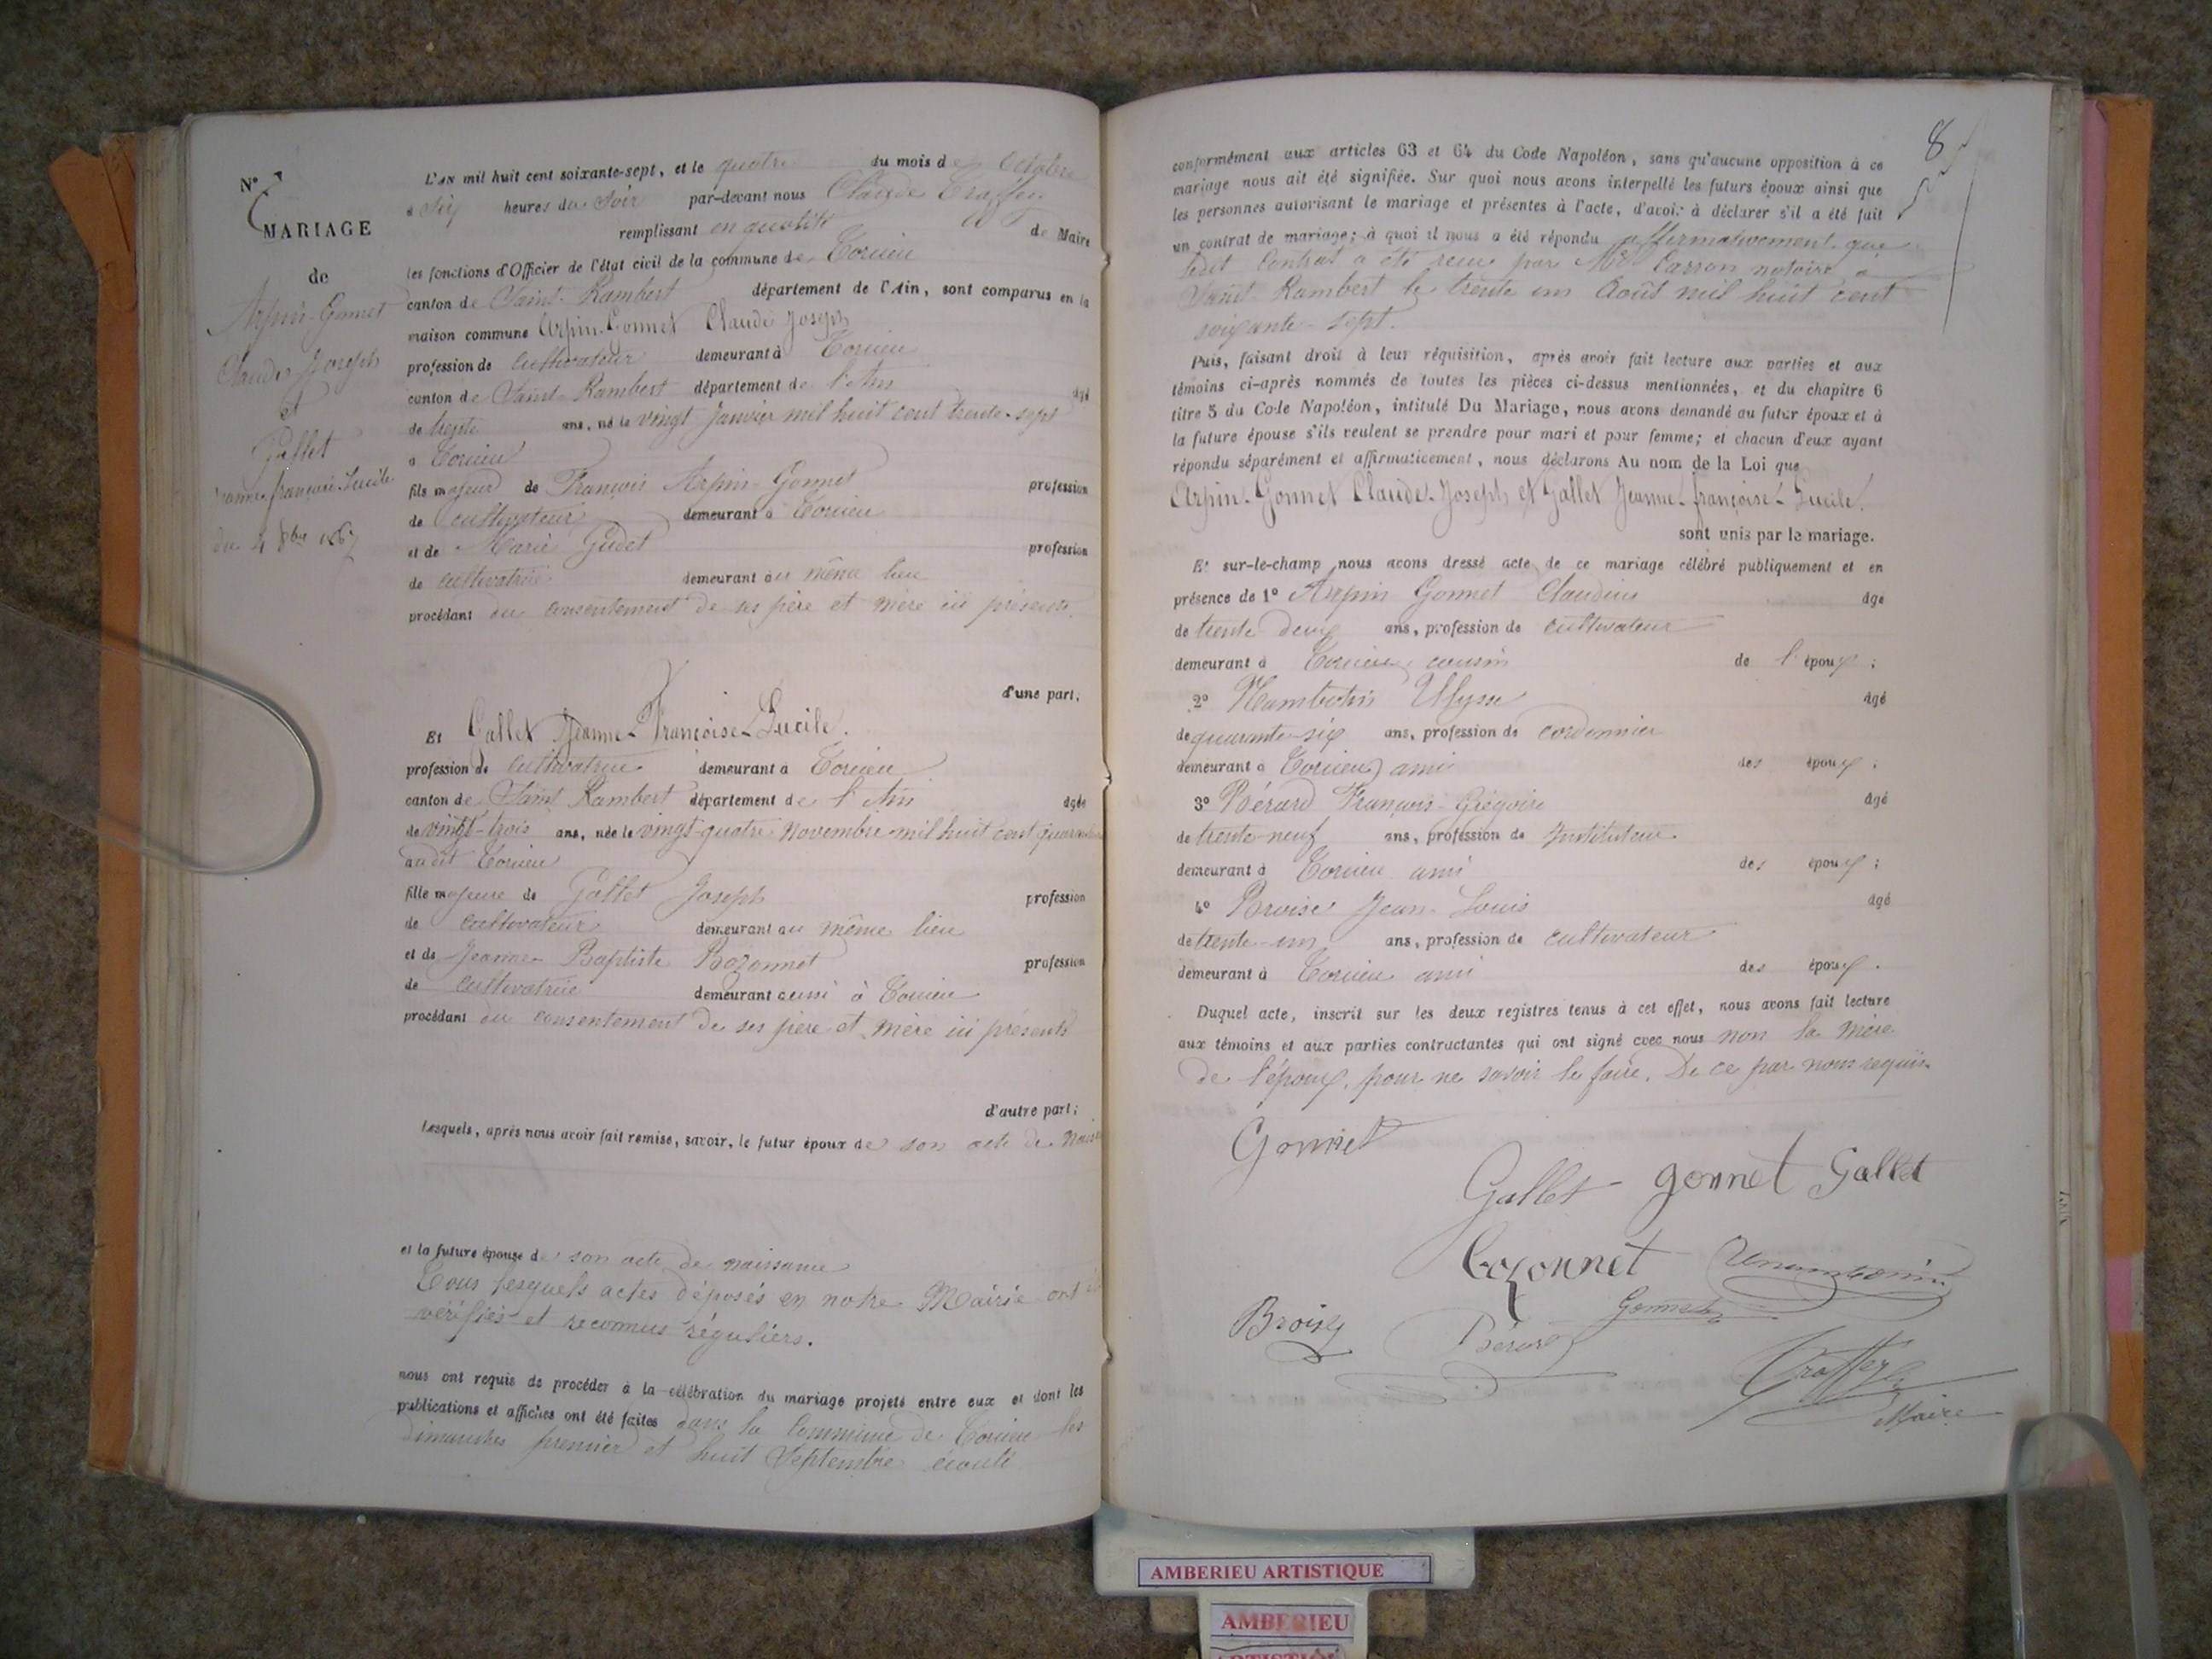 N° 7
MARIAGE
de
Arpin-Gonnet
Claude Joseph
et
Gallet
Jeanne françoise Lucile
du 4 8bre 1867
L'AN mil huit cent soixante-sept, et le quatre du mois d'Octobre
à Six heures du Soir par-devant nous Claude Traffey
remplissant en qualité de Maire
les fonctions d'Officier de l'état civil de la commune de Torcieu
canton de Saint-Rambert département de l'Ain, sont comparus en la
maison commune Arpin-Gonnet Claude Joseph
profession de cultivateur demeurant à Torcieu
canton de Saint-Rambert département de l'Ain âgé
de trente ans, né le vingt Janvier mil huit cent trente-sept
à Torcieu
fils majeur de François Arpin-Gonnet profession
de cultivateur demeurant à Torcieu
et de Marie Gudet profession
de cultivatrice demeurant au même lieu
procédant du consentement de ses père et mère ici présents
d'une part;
Et Gallet Jeanne-Françoise-Lucile.
profession de cultivatrice demeurant à Torcieu
canton de Saint Rambert département de l'Ain âgée
de vingt-trois ans, née le vingt-quatre Novembre mil huit cent quarante
audit Torcieu
fille majeure de Gallet Joseph profession
de cultivateur demeurant au même lieu
et de Jeanne Baptiste Bozonnet profession
de cultivatrice demeurant aussi à Torcieu
procédant du consentement de ses père et mère ici présents
d'autre part;
Lesquels, après nous avoir fait remise, savoir, le futur époux de son acte de
et la future épouse de son acte de naissance
Tous lesquels actes déposés en notre Mairie ont
vérifiés et reconnus réguliers.
nous ont requis de procéder à la célébration du mariage projeté entre eux et dont les
publications et affiches ont été faites dans la Commune de Torcieu les
dimanches premier et huit Septembre écoulé
8
conformément aux articles 63 et 64 du Code Napoléon, sans qu'aucune opposition à ce
mariage nous ait été signifiée. Sur quoi nous avons interpellé les futurs époux ainsi que
les personnes autorisant le mariage et présentes à l'acte, d'avoir à déclarer s'il a été fait
un contrat de mariage; à quoi il nous a été répondu affirmativement que
ledit Contrat a été reçu par Me Carron notaire à
Saint-Rambert le trente un Août mil huit cent
soixante-sept.
Puis, faisant droit à leur réquisition, après avoir fait lecture aux parties et aux
témoins ci-après nommés de toutes les pièces ci-dessus mentionnées, et du chapitre 6
titre 5 du Code Napoléon, intitulé Du Mariage, nous avons demandé au futur époux et à
la future épouse s'ils veulent se prendre pour mari et pour femme; et chacun d'eux ayant
répondu séparément et affirmativement, nous déclarons Au nom de la Loi que
Arpin-Gonnet Claude-Joseph et Gallet Jeanne-françoise-Lucile.
sont unis par le mariage.
Et sur-le-champ nous avons dressé acte de ce mariage célébré publiquement et en
présence de 1° Arpin Gonnet Claudius âgé
de trente deux ans, profession de cultivateur
demeurant à Torcieu, cousin de l'époux;
2° Ulysse âgé
de quarante-six ans, profession de cordonnier
demeurant à Torcieu, ami des époux;
3° Bérard François-Grégoire âgé
de trente-neuf ans, profession de Instituteur
demeurant à Torcieu ami des époux;
4° Broisey Jean-Louis âgé
de trente-un ans, profession de cultivateur
demeurant à Torcieu ami des époux.
Duquel acte, inscrit sur les deux registres tenus à cet effet, nous avons fait lecture
aux témoins et aux parties contractantes qui ont signé avec nous non la mère
de l'époux, pour ne savoir le faire. De ce par nous requis.
Gonnet
Gallet gonnet Gallet
bozonnet
Gonnet
Broisey Bérard
Traffey
Maire
AMBERIEU ARTISTIQUE
AMBERIEU
ARTISTIQUE